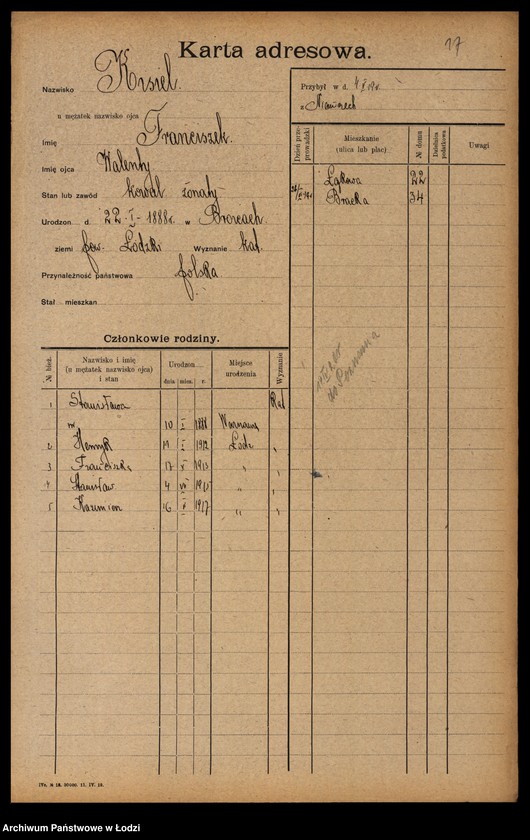 Karta adresowa.
17
Nazwisko Kisiel.
u mężatek nazwisko ojca
Imię Franciszek.
Imię ojca Walenty
Stan lub zawód kowal żonaty
Urodzon d. 22-I-1888r. w
ziemi pow. Łódzki Wyznanie kat.
Przynależność państwowa polska
Stał mieszkan
Przybył w d.
z Niemczech
Dzień przeprowadzki
Mieszkanie (ulica lub plac)
№ domu
Dzielnica podatkowa
Uwagi
Łąkowa 22
Bracka 34
Członkowie rodziny.
№ bież.
Nazwisko i imię (u mężatek nazwisko ojca) i stan
Urodzon
dnia mies. r.
Miejsce urodzenia
Wyznanie
1 Stanisława Kat
10 1888 Warszawa
2 Henryk 19 1912 Łódź
3 Franciszek 17 1913 "
4 Stanisław 4 VII 1915 "
5 Kazimierz 16 1917 "
Archiwum Państwowe w Łodzi